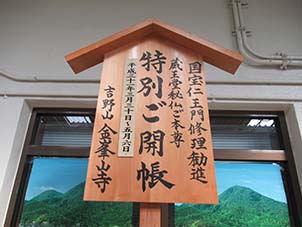 国宝仁王門修理勧進
蔵王堂秘仏ご本尊
特別ご開帳
平成二十四年三月三十日~五月六日
吉野山 金峯山寺